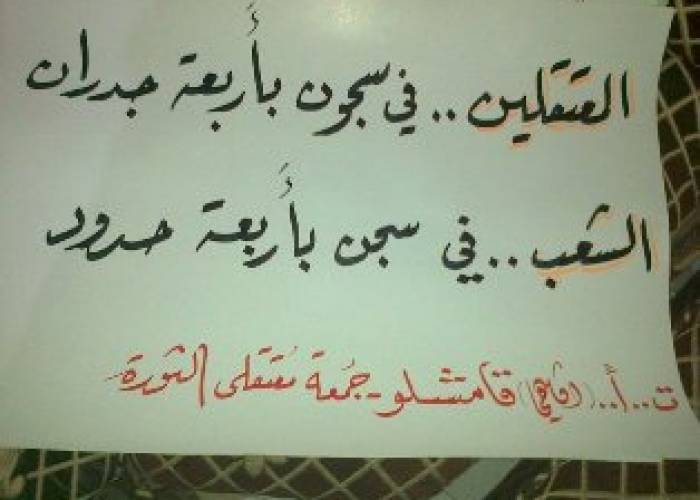 المعتقلين .. في سجون بأربعة جدران
الشعب .. في سجن بأربعة حدود
ت .. أ .. () قامشلو - جُمعة مُعتقلى الثورة